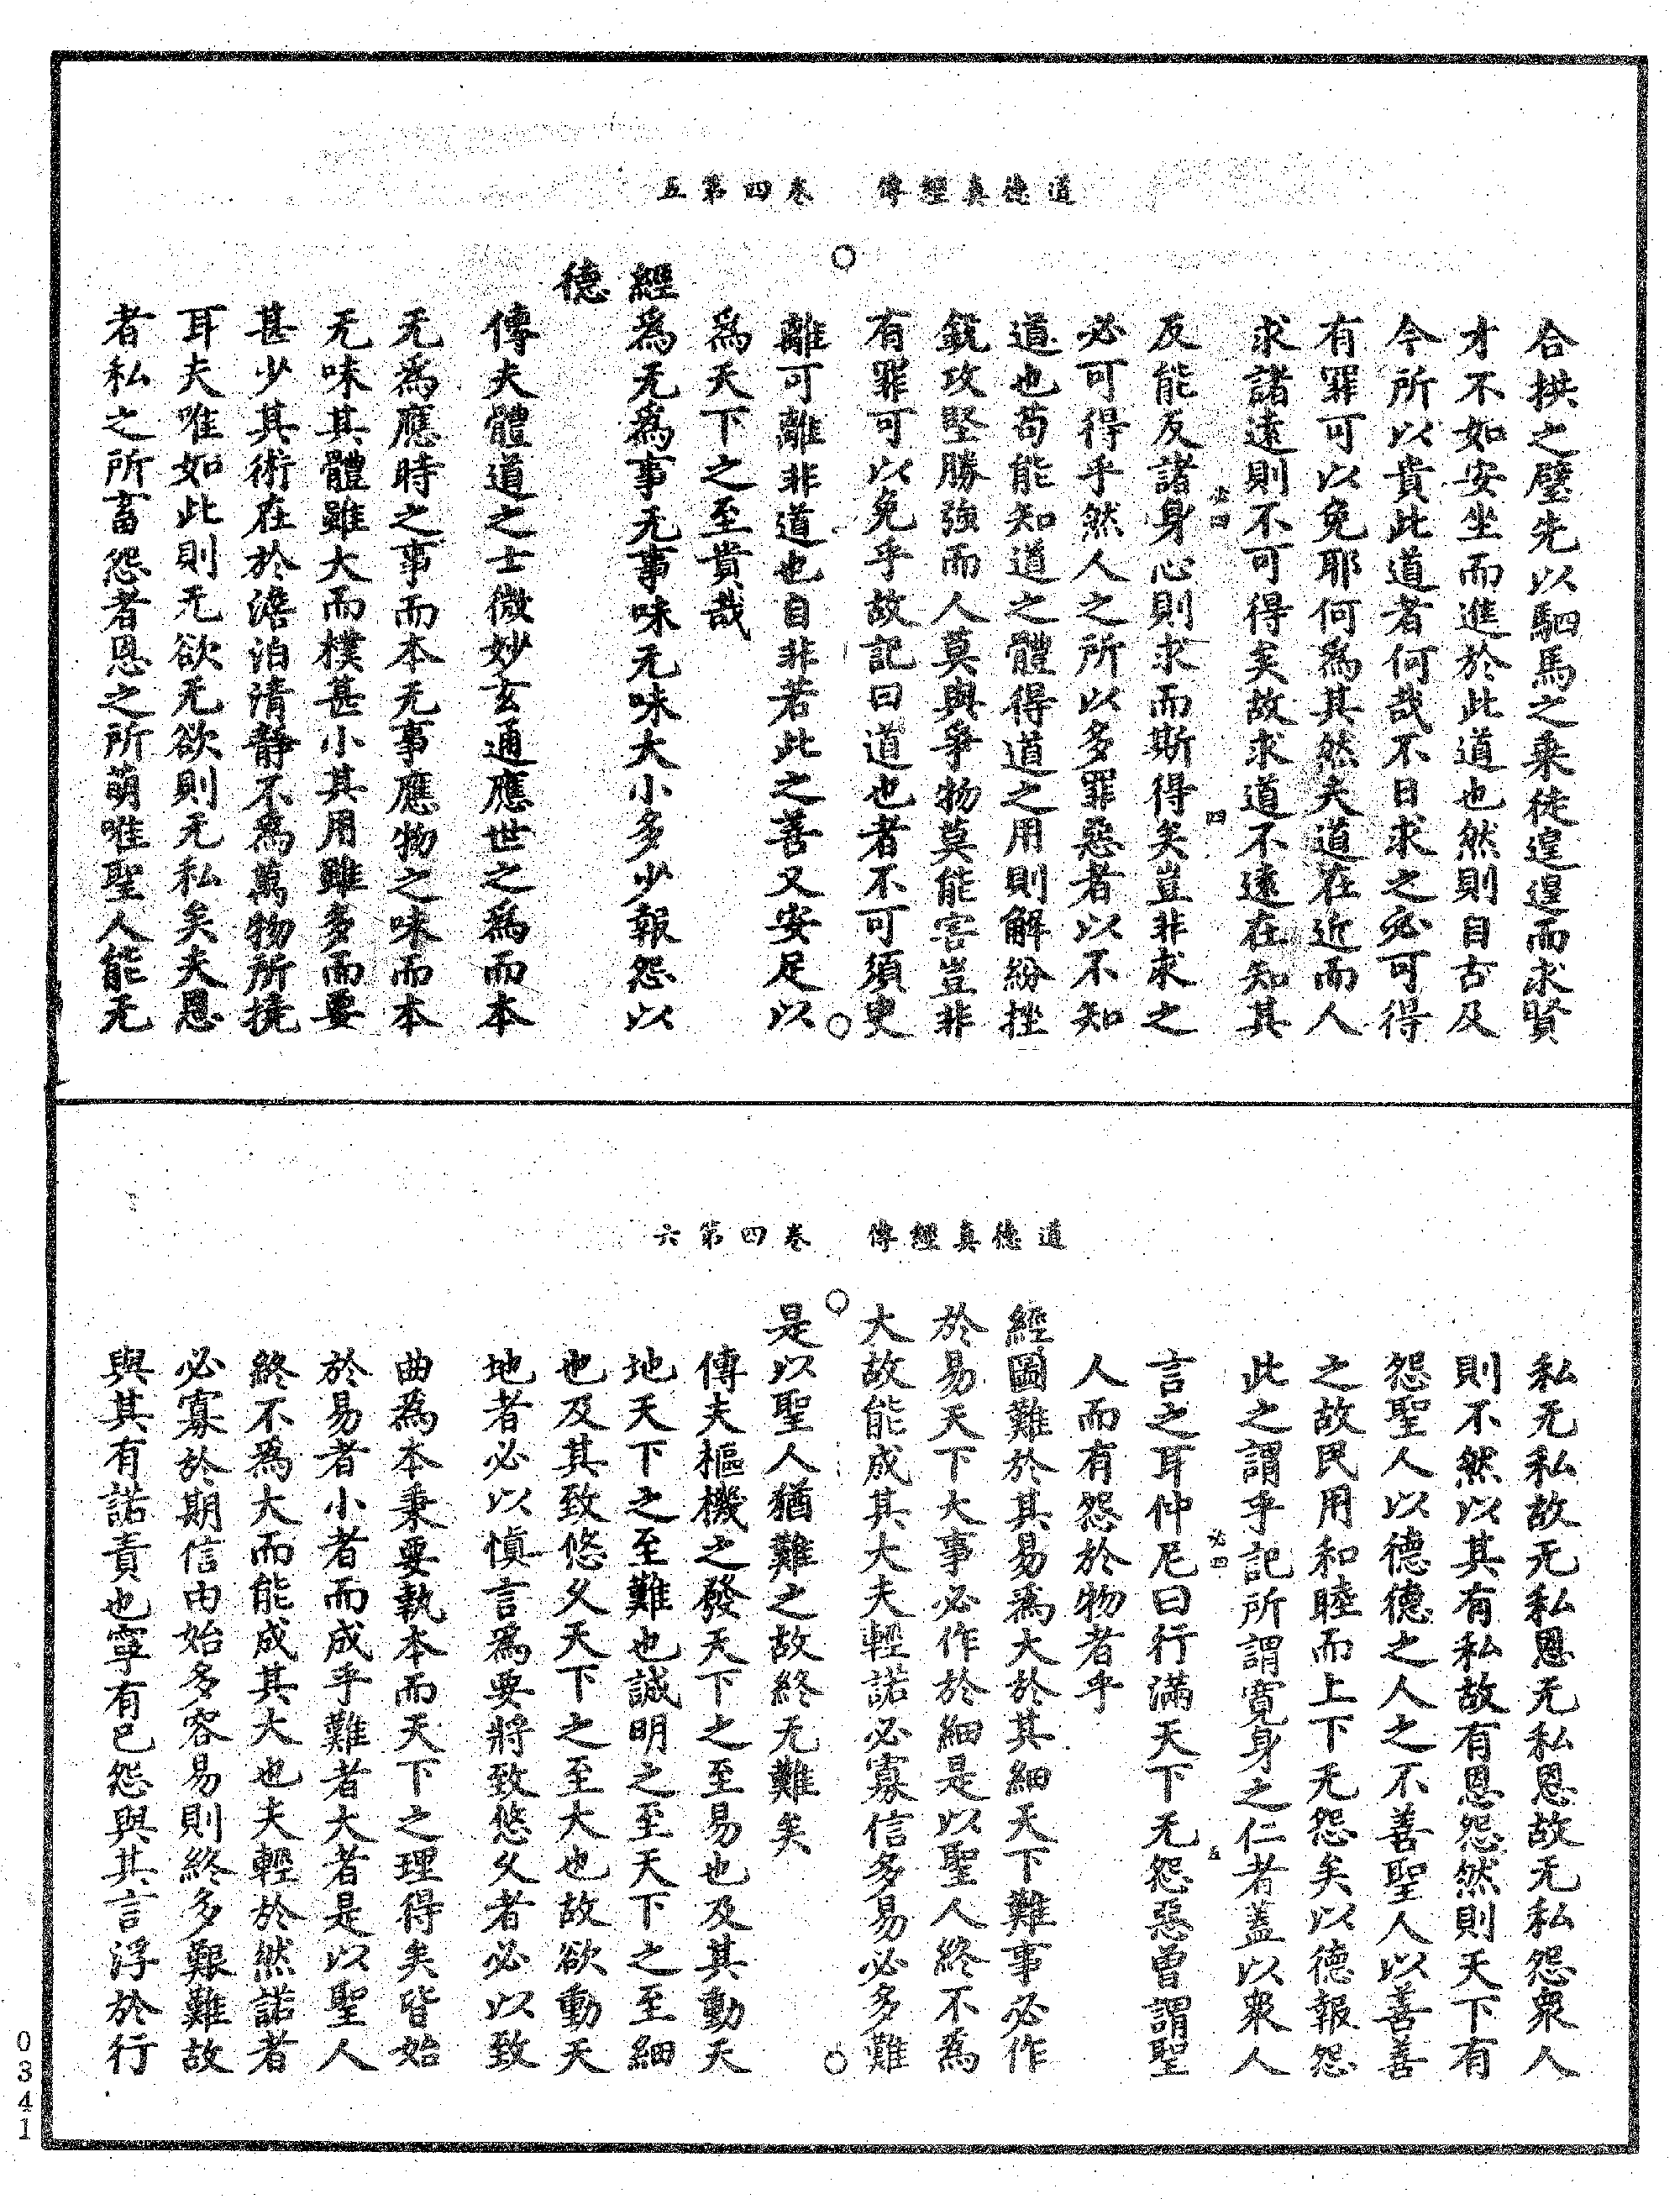 道德真經傳　卷四第五
合拱之璧先以駟馬之乘徒遑遑而求賢
才不如安坐而進於此道也然則自古及
今所以貴此道者何哉不日求之必可得
有罪可以免耶何為其然夫道在近而人
求諸遠則不可得矣故求道不遠在知其
反能反諸身心則求而斯得矣豈非求之
必可得乎然人之所以多罪惡者以不知
道也苟能知道之體得道之用則解紛挫
銳攻堅勝強而人莫與爭物莫能害豈非
有罪可以免乎故記曰道也者不可須臾
離可離非道也自非若此之善又安足以
為天下之至貴哉
經為无為事无事味无味大小多少報怨以
德
傳夫體道之士微妙玄通應世之為而本
无為應時之事而本无事應物之味而本
无味其體雖大而樸甚小其用雖多而要
甚少其術在於澹泊清靜不為萬物所撓
耳夫唯如此則无欲无欲則无私矣夫恩
者私之所畜怨者恩之所萌唯聖人能无
道德真經傳　卷四第六
私无私故无私恩无私恩故无私怨衆人
則不然以其有私故有恩怨然則天下有
怨聖人以德德之人之不善聖人以善善
之故民用和睦而上下无怨矣以德報怨
此之謂乎記所謂寬身之仁者蓋以衆人
言之耳仲尼曰行滿天下无怨惡曾謂聖
人而有怨於物者乎
經圖難於其易為大於其細天下難事必作
於易天下大事必作於細是以聖人終不為
大故能成其大夫輕諾必寡信多易必多難
是以聖人猶難之故終无難矣
傳夫樞機之發天下之至易也及其動天
地天下之至難也誠明之至天下之至細
也及其致悠久天下之至大也故欲動天
地者必以慎言為要將致悠久者必以致
曲為本秉要執本而天下之理得矣皆始
於易者小者而成乎難者大者是以聖人
終不為大而能成其大也夫輕於然諾者
必寡於期信由始多容易則終多艱難故
與其有諾責也寧有已怨與其言浮於行
0341